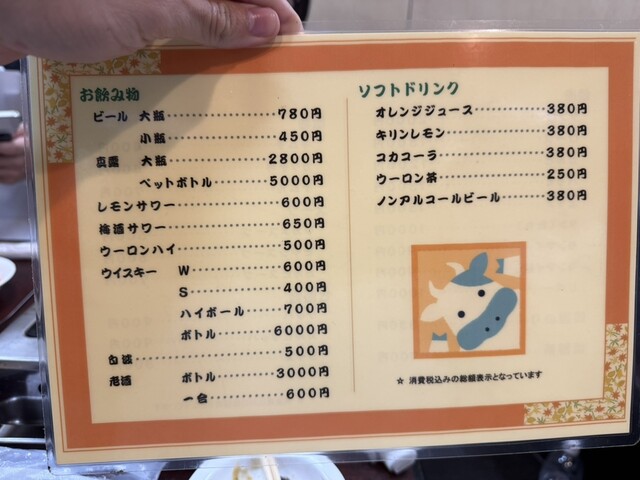 お飲み物
ビール 大瓶……………780円
小瓶……………450円
真露 大瓶……………2800円
ペットボトル………5000円
レモンサワー……………600円
梅酒サワー……………650円
ウーロンハイ……………500円
ウイスキー W……………600円
S……………400円
ハイボール………700円
ボトル……………6000円
白波……………500円
老酒 ボトル……………3000円
一合……………600円
ソフトドリンク
オレンジジュース……………380円
キリンレモン……………380円
コカコーラ……………380円
ウーロン茶……………250円
ノンアルコールビール……………380円
☆ 消費税込みの総額表示となっています